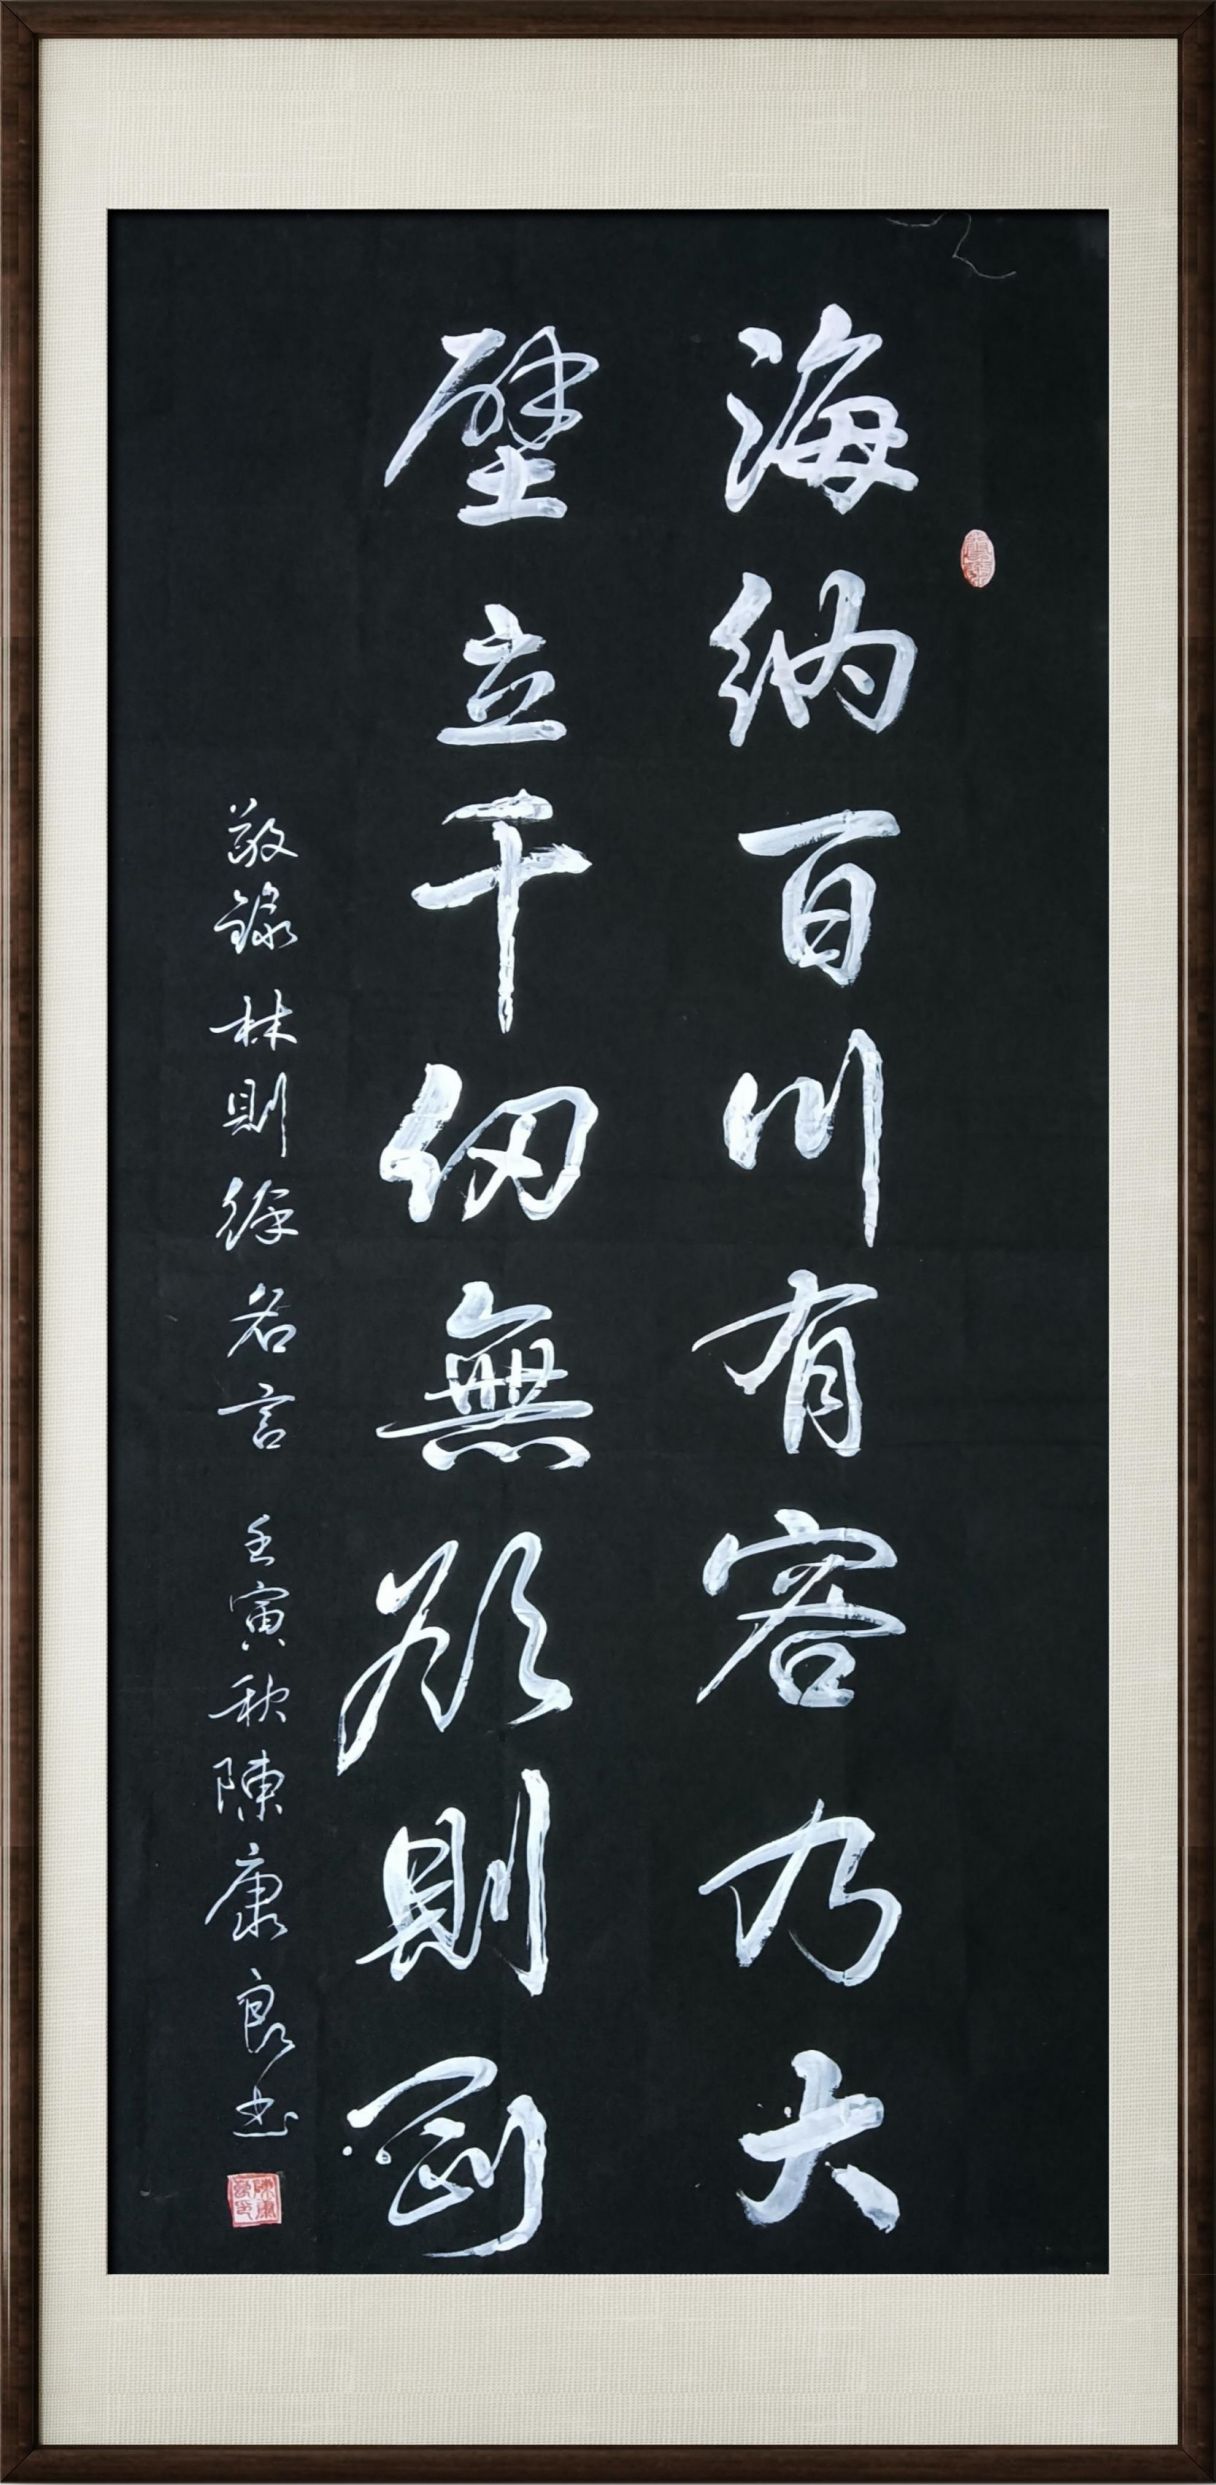 海納百川有容乃大
壁立千仞無欲則剛
敬錄林則徐名言 壬寅秋陳康良书